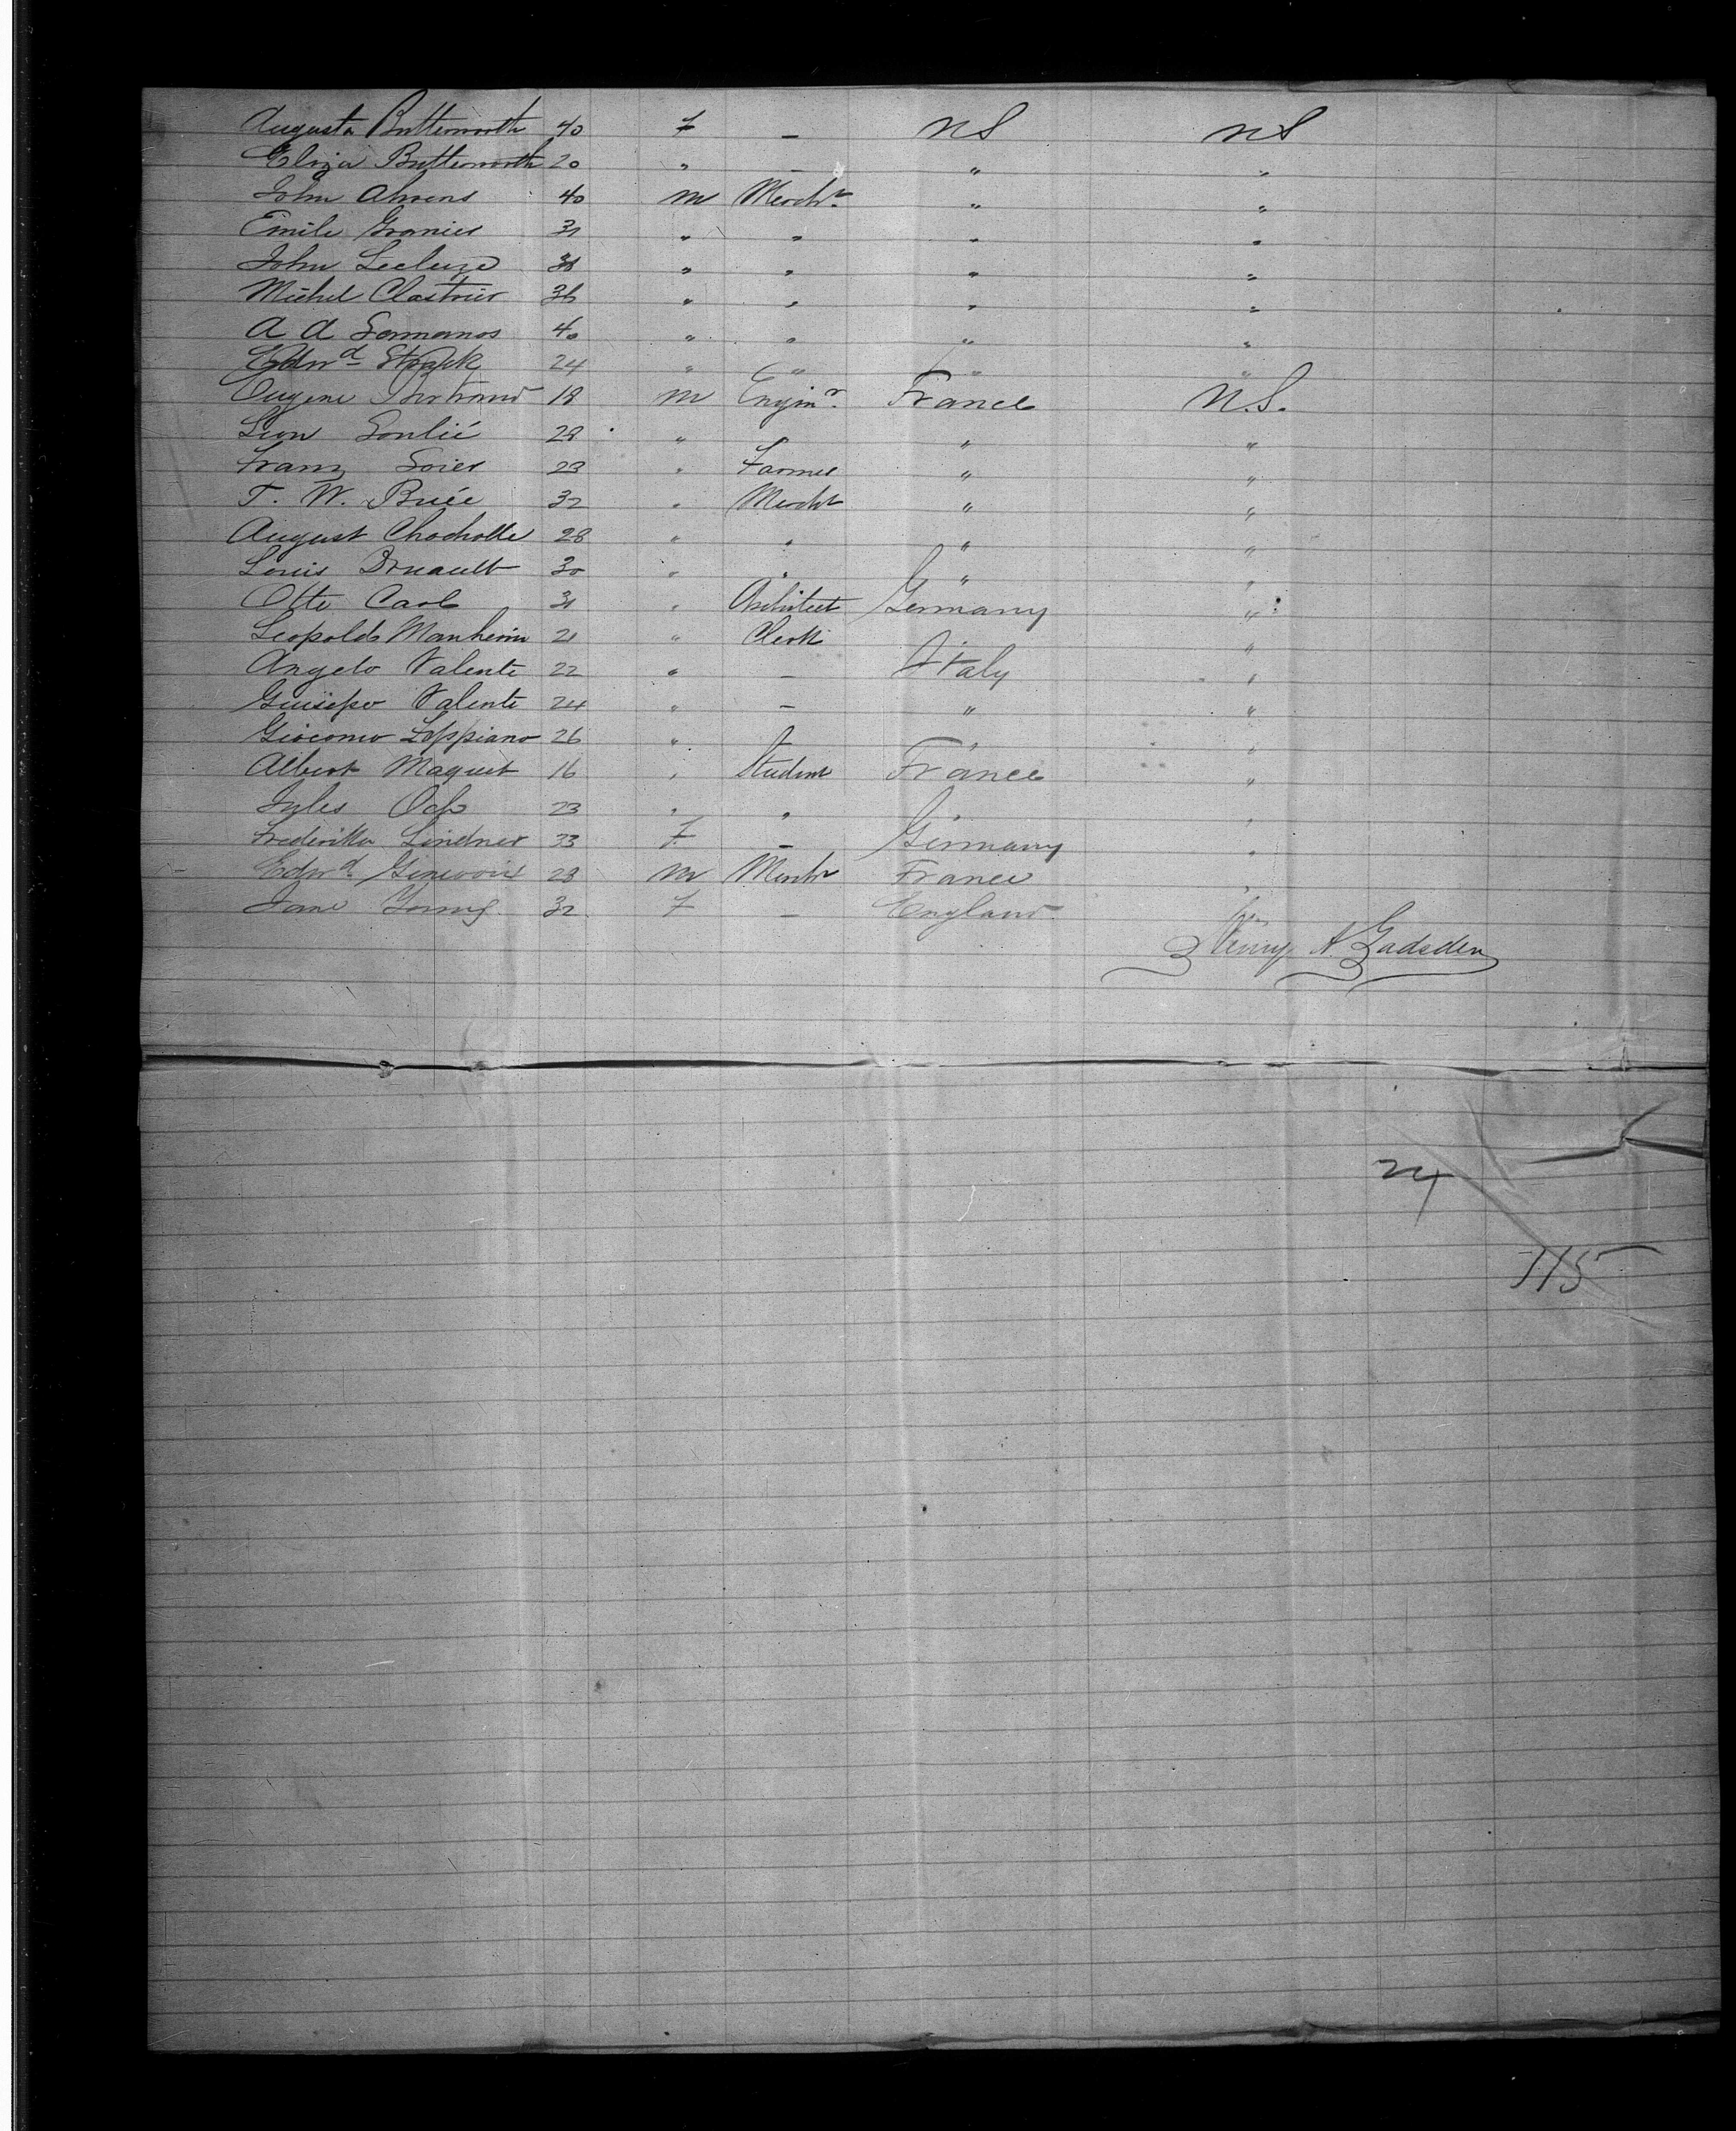 Augusta Butterworth 40 F — US US
Eliza Butterworth 20 " — " "
John Ahrens 40 M Mercht " "
Emile Granier 31 " " " "
John Lecluze 38 " " " "
Michel Clastrier 36 " " " "
A A 40 " " " "
Edwd 24 " " " "
Eugene Bertrand 18 M Enginr France U.S.
Leon Soulié 28 " " "
Franz Soier 23 " Farmer " "
T. W. Buée 32 " Mercht " "
August Chocholle 28 " " " "
Louis Druault 30 " " " "
Otto Carl 31 " Architect Germany "
Leopold Manheim 21 " Clerk "
Angelo Valente 22 " — Italy "
Guisepe Valente 24 " — " "
Giocomo 26 " "
Albert Maquet 16 " Student France "
Jules Och 23 " " "
Frederika Lindner 33 F — Germany "
Edwd 28 M Mercht France "
Jane Young 32 F — England "
Henry A Gadsden
24
115